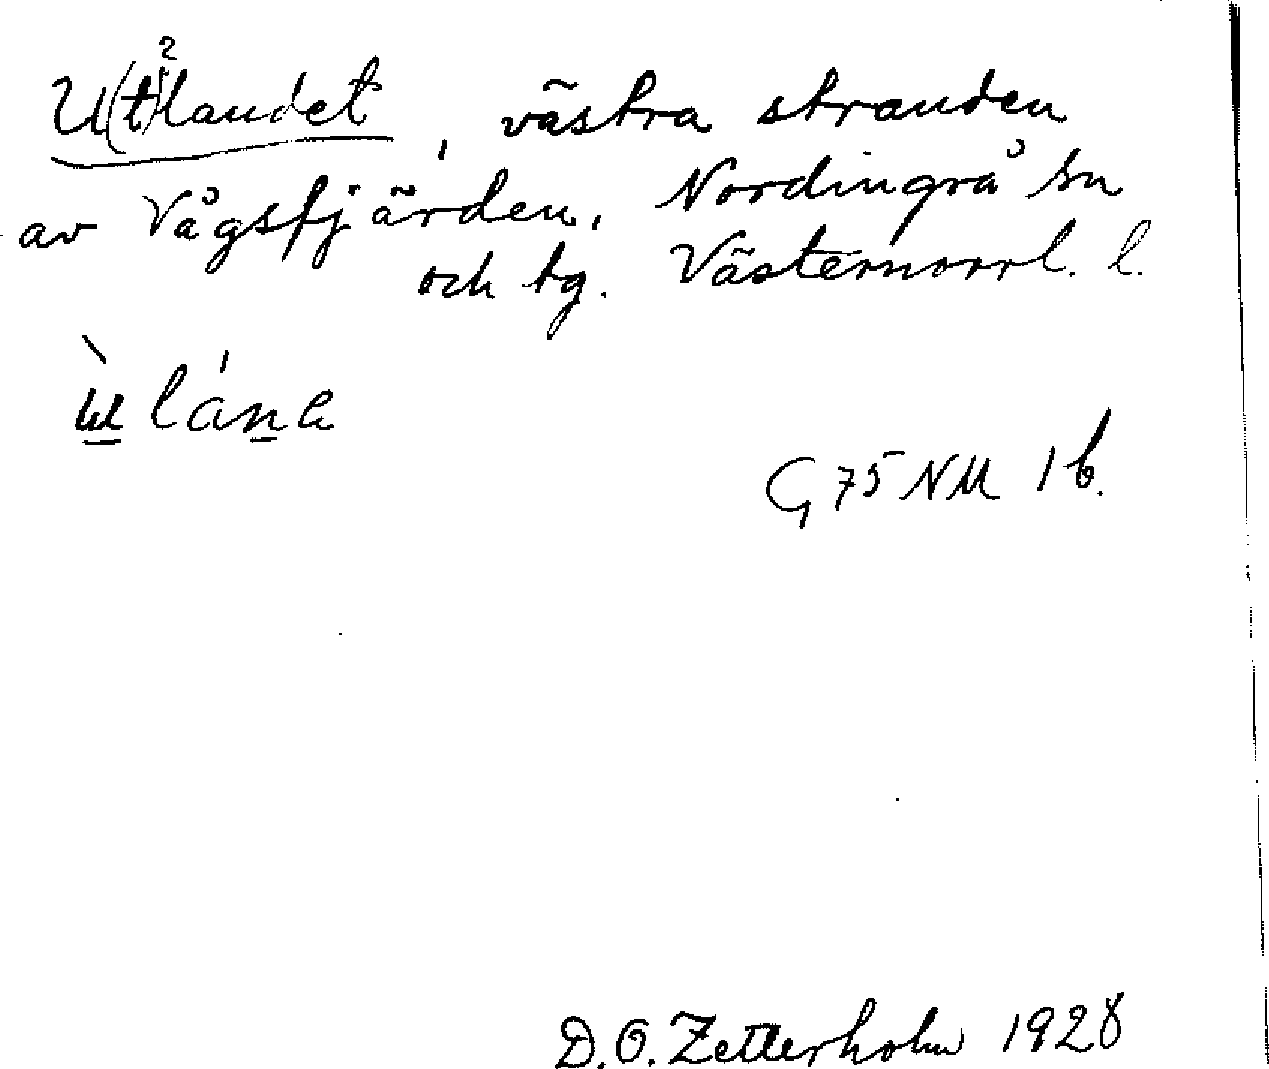 U(t)?landet, västra stranden
av Vågsfjärden, Nordingrå sn
och tg. Västernorrl. l.
lána
G 75 NM 1 b.
D. O. Zetterholm 1928